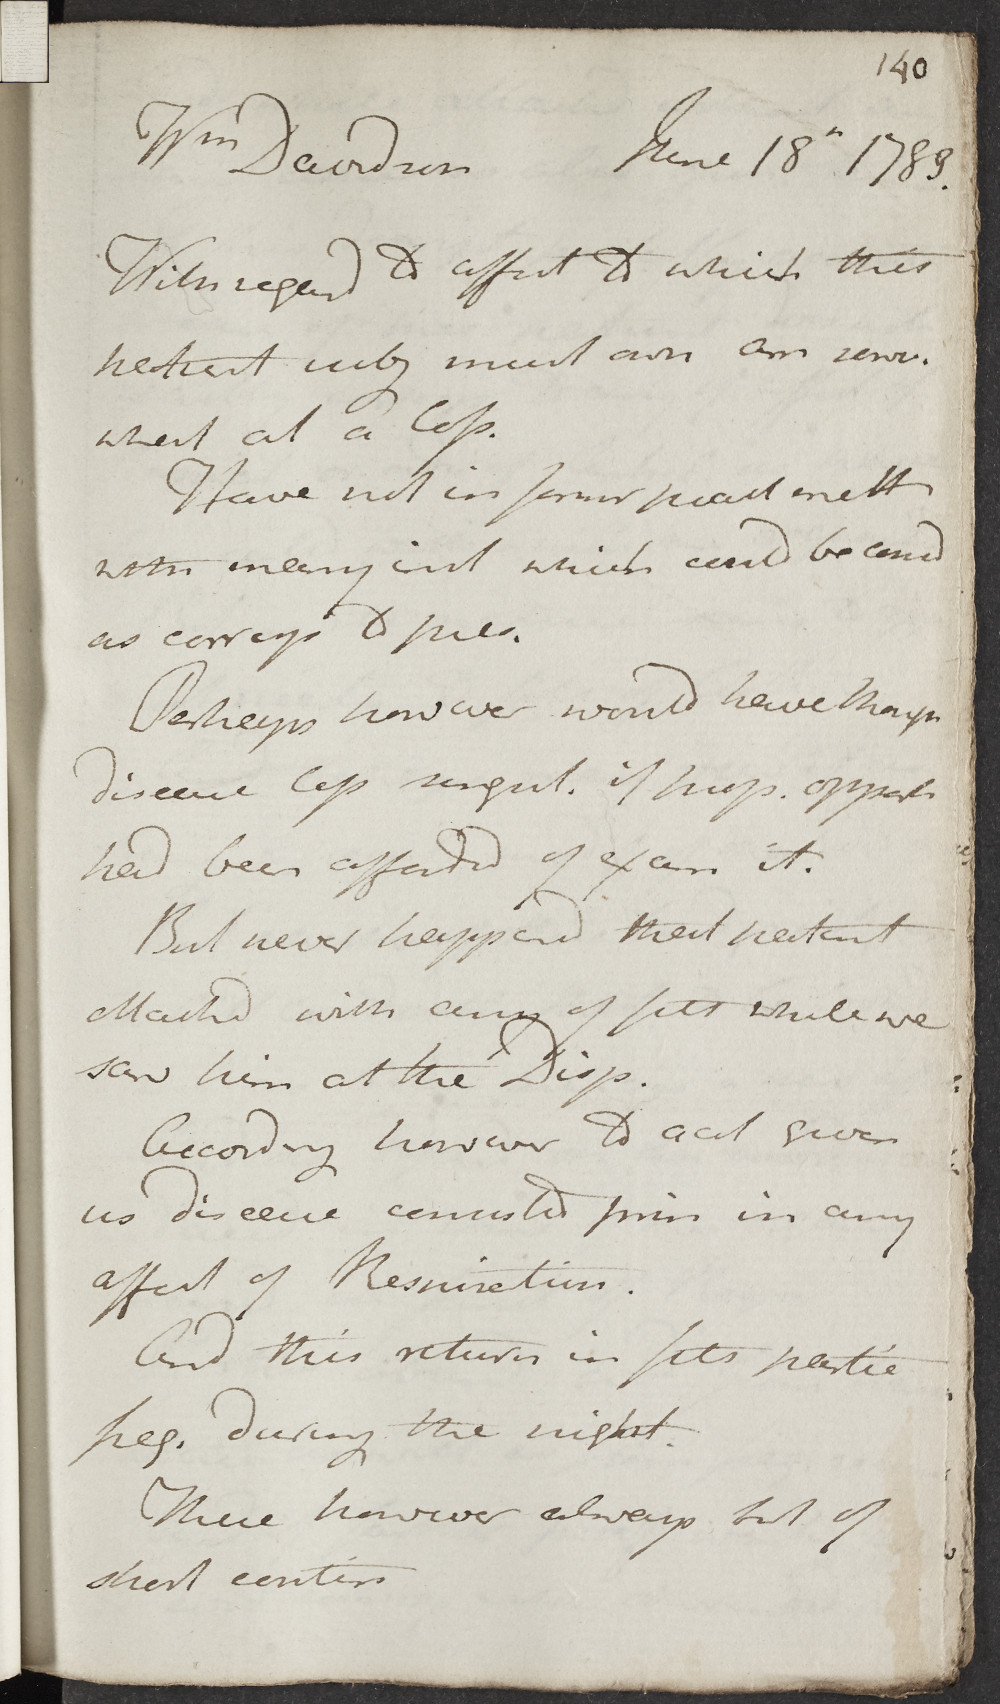 140
Wm Davidson June 18th 1789.
With regard to affect to which this
patient subj must own am some-
what at a loss.
Have not in former pract mett
with many inst which could be cons'd
as corresp to pres.
Perhaps however would have thought
disease less singul. if freq. opport
had been afforded of exam it.
But never happened that patient
attacked with any of fits while we
saw him at the Disp.
According however to acct given
us disease consisted prin in any
affect of Respiration.
And this return in fits partic
freq. during the night.
These however always but of
short contin